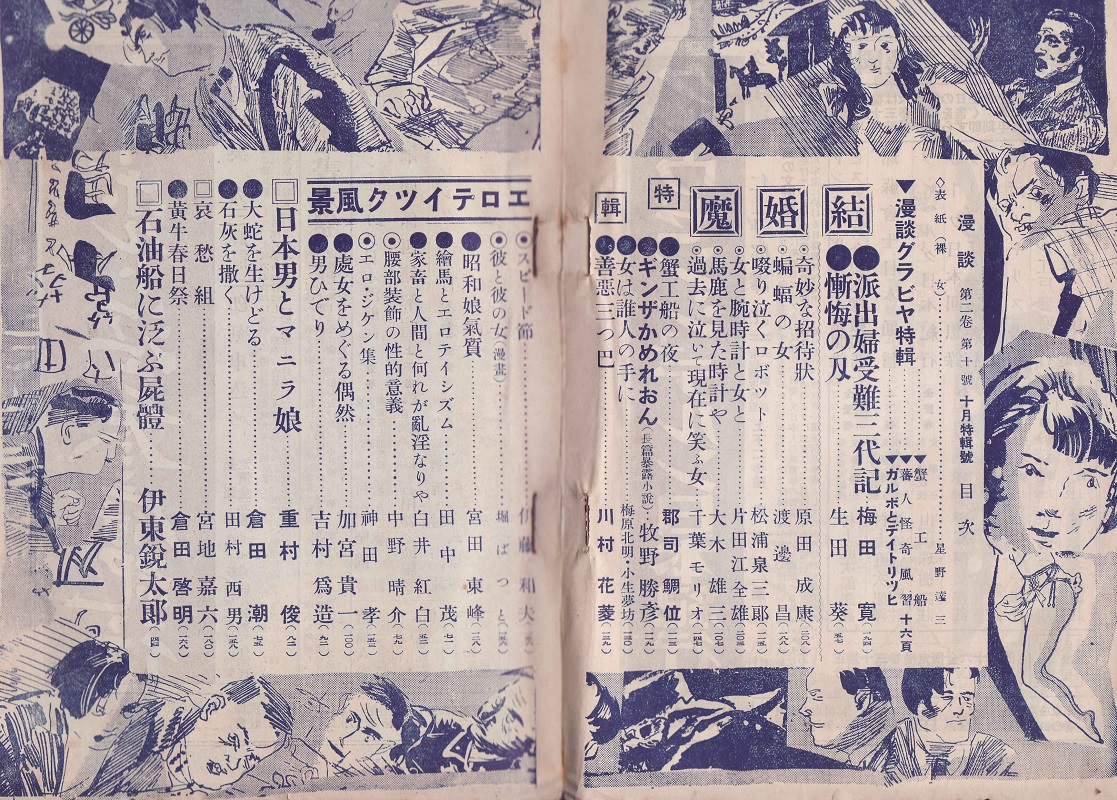 漫談 第二卷 第十號 十月特輯號 目次
◇表紙(裸女)……星野遠三
▼漫談グラビヤ特輯
▼蟹工船
▼蕃人怪奇風習
▼ガルボとデイトリツヒ
十六頁
結婚魔
特輯
●派出婦受難三代記……梅田寛
●慚悔の及……生田葵
奇妙な招待狀……原田成康
蝙蝠の女……渡邊昌
啜り泣くロボツト……松浦泉三郎
女と腕時計と女と……片田江全雄
馬鹿を見た時計や……大木雄三
過去に泣いて現在に笑ふ女……千葉モリオ
●蟹工船の夜……郡司鯛位
●ギンザかめれおん(長篇暴露小說)……牧野勝彥
●女は誰人の手に……梅原北明・小生夢坊
●善惡三つ巴……川村花菱
エロテイツク風景
スピード節……伊藤和夫
彼と彼の女(漫畫)……堀ばつと
●昭和娘氣質……宮田東峰
●繪馬とエロテイシズム……田中茂
●家畜と人間と何れが亂淫なりや……白井紅白
腰部裝飾の性的意義……中野晴介
エロ・ジケン集……神田孝
●處女をめぐる偶然……加宮貴一
●男ひでり……吉村爲造
□日本男とマニラ娘……重村俊
●大蛇を生けどる……倉田潮
●石灰を撒く……田村西男
□哀愁組……宮地嘉六
●黃牛春日祭……倉田啓明
□石油船に泛ぶ屍體……伊東銳太郎